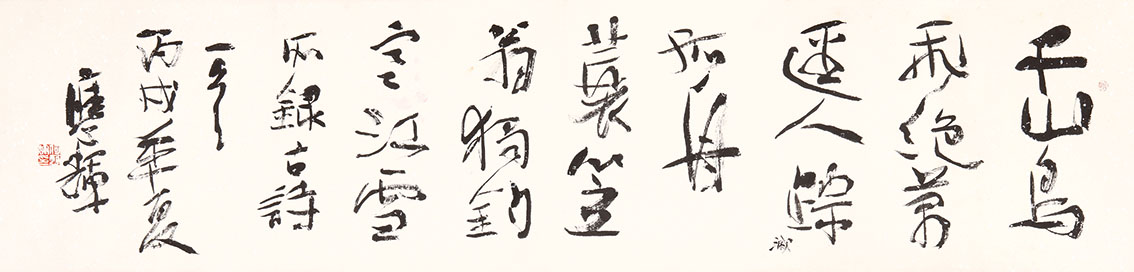 千山鳥
飛絶萬
逕人踪滅
孤舟
蓑笠
翁獨釣
寒江雪
録古詩
一首
丙戌年夏
應輝